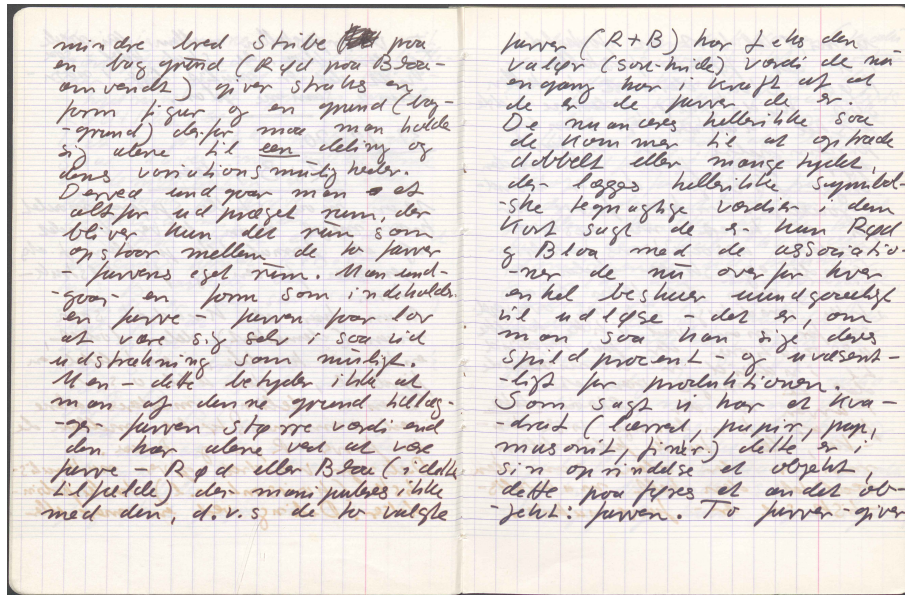 mindre bred stribe paa
en bag grund (Rød paa Blaa-
omvendt) giver straks en
form figur og en grund (bag-
-grund) derfor maa man holde
sig alene til een deling og
dens variationsmuligheder.
Derved undgaar man et
alt for udpræget rum, der
bliver kun det rum som
opstaar mellem de to farver
- farvens eget rum. Man und-
-gaar en form som indeholder
en farve - farven faar lov
at være sig selv i saa vid
udstrækning som muligt.
Men - dette betyder ikke at
man af denne grund tillæg-
-ger farven større værdi end
den har alene ved at være
farve - Rød eller Blaa (i dette
tilfælde) der manipuleres ikke
med den, d.v.s. de to valgte
farver (R+B) har f.eks den
valør (sort-hvide) værdi de nu
engang har i kraft af at
de er de farver de er.
De nuanceres heller ikke saa
de kommer til at optræde
dobbelt eller mangetydet,
der lægges heller ikke symbol-
-ske tegnagtige værdier i dem
kort sagt de er kun Rød
og Blaa med de associatio-
-ner de nu over for hver
enkel beskuer uundgaaeligt
vil udløse - det er, om
man saa kan sige deres
spildprocent - og uvæsent-
-ligt for produktionen.
Som sagt vi har et kva-
-drat (lærred, papir, pap,
masonit, finér) dette er i
sin oprindelse et objekt,
dette paaføres et andet ob-
-jekt: farven. To farver - giver